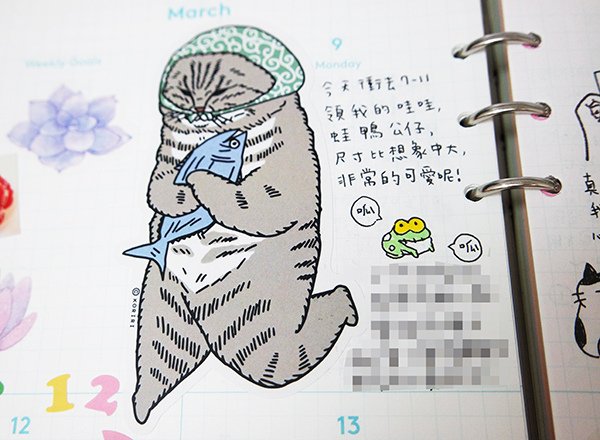 March
Weekly Goals
9
Monday
今天衝去7-11
領我的哇哇,
蛙鴨公仔,
尺寸比想象中大,
非常的可愛呢!
呱
呱
© KORIRI
12
12
13